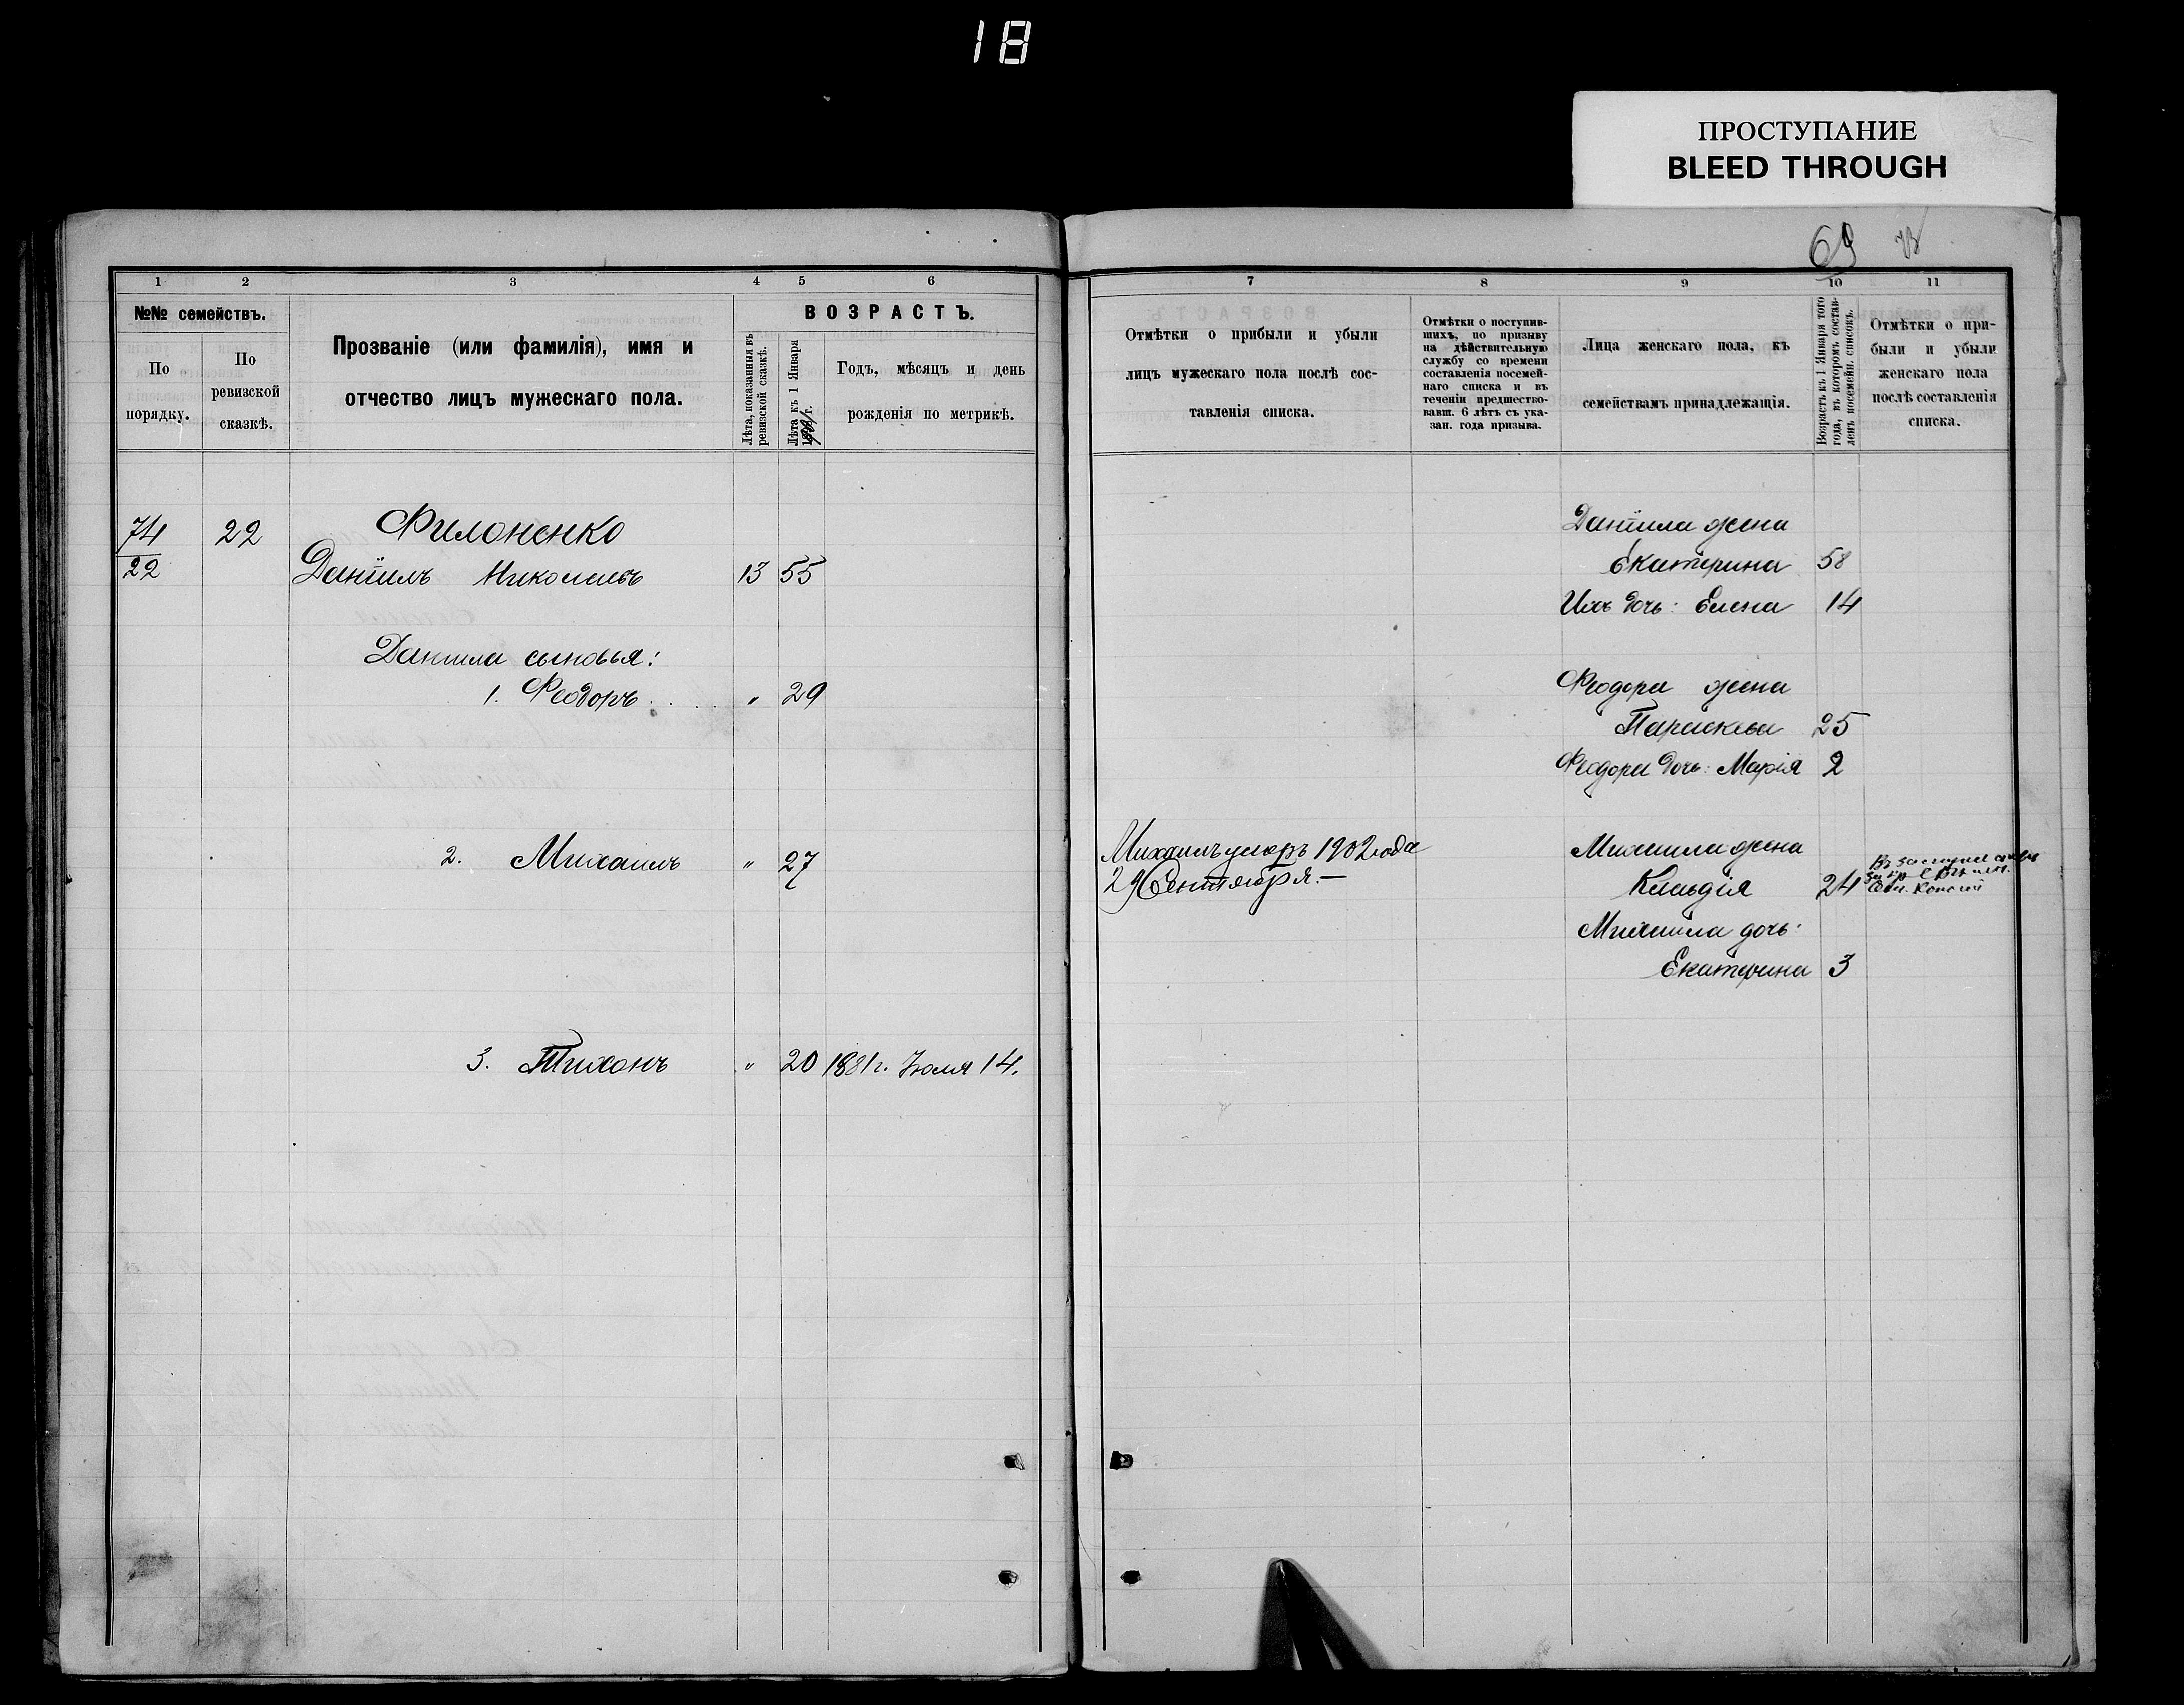 18
ПРОСТУПАНИЕ
BLEED THROUGH
69
1 2 3 4 5 6
№№ семействъ.
По порядку.
По ревизской сказкѣ.
Прозваніе (или фамилія), имя и
отчество лицъ мужескаго пола.
ВОЗРАСТЪ.
Лѣта, показанныя въ
ревизской сказкѣ.
Лѣта къ 1 Января
Годъ, мѣсяцъ и день
рожденія по метрикѣ.
7 8 9 10 11
Отмѣтки о прибыли и убыли
лицъ мужескаго пола послѣ сос-
тавленія списка.
Отмѣтки о поступив-
шихъ, по призыву
на дѣйствительную
службу со времени
составленія посемей-
наго списка и въ
теченіи предшество-
вавш. 6 лѣтъ съ ука-
зан. года призыва.
Лица женскаго пола, къ
семействамъ принадлежащія.
Возрастъ къ 1 Января того
года, въ которомъ состав-
ленъ посемейн. списокъ.
Отмѣтки о при-
были и убыли
женскаго пола
послѣ составленія
списка.
74 22 Филоненко
22 Даніилъ Николаевъ 13 55
Даниила сыновья:
1. Феодоръ . . . . „ 29
2. Михаилъ „ 27
3. Тихонъ „ 20 1881 г. Іюля 14.
Михаилъ умеръ 1902 года
29 Сентября.—
Даніила жена
Екатерина 58
Ихъ дочь: Елена 14
Феодора жена
Параскева 25
Феодора дочь: Марія 2
Михаила жена
Клавдія 24
Михаила дочь:
Екатерина 3